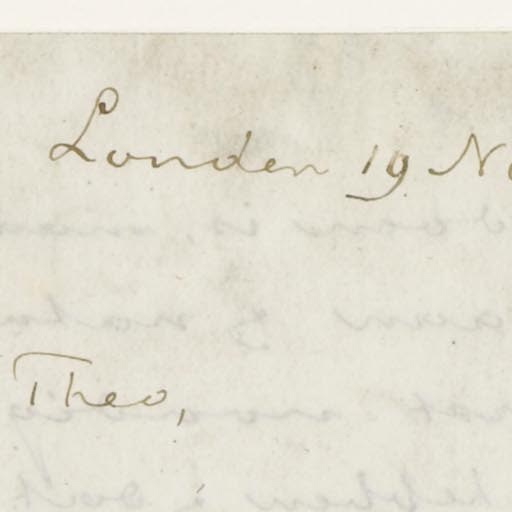 Londen 19 N
Theo,